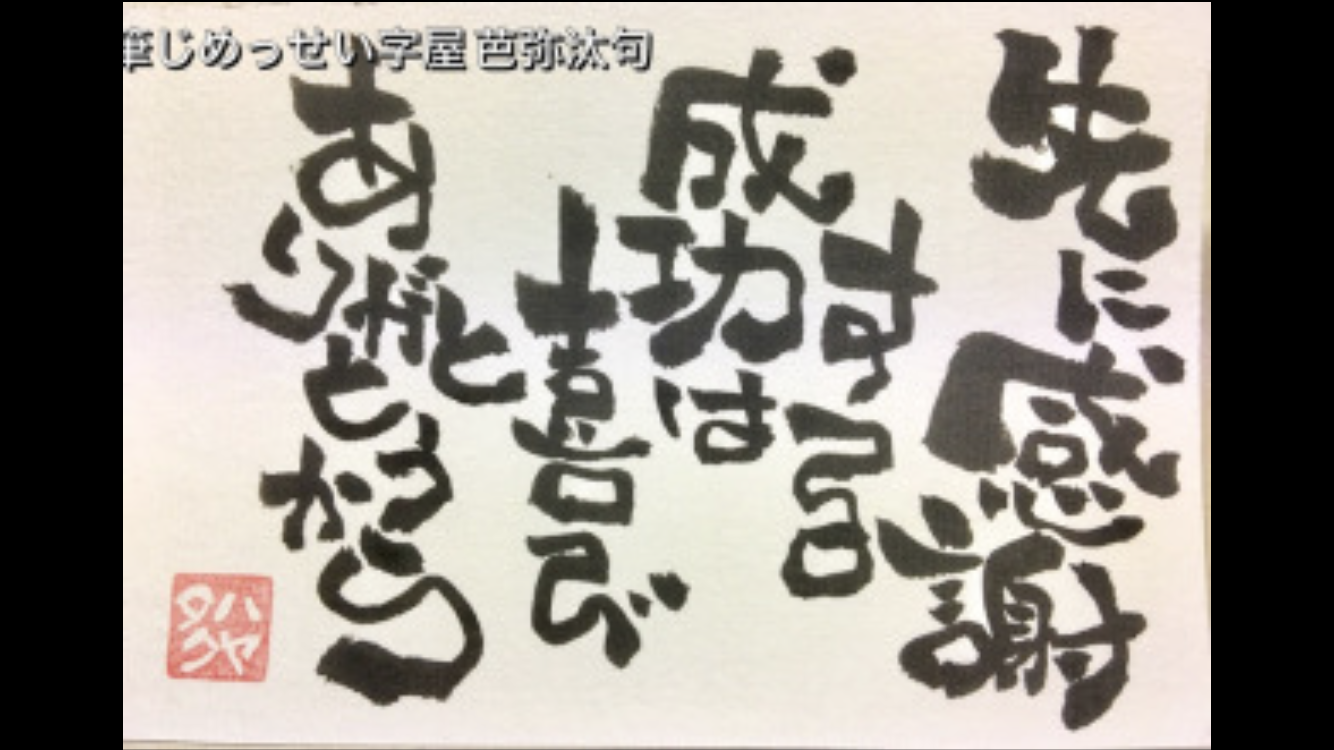 筆じめっせい字屋 芭弥汰句
先に感謝
する
成功は
喜びと
ありがとうから
ハヤタク